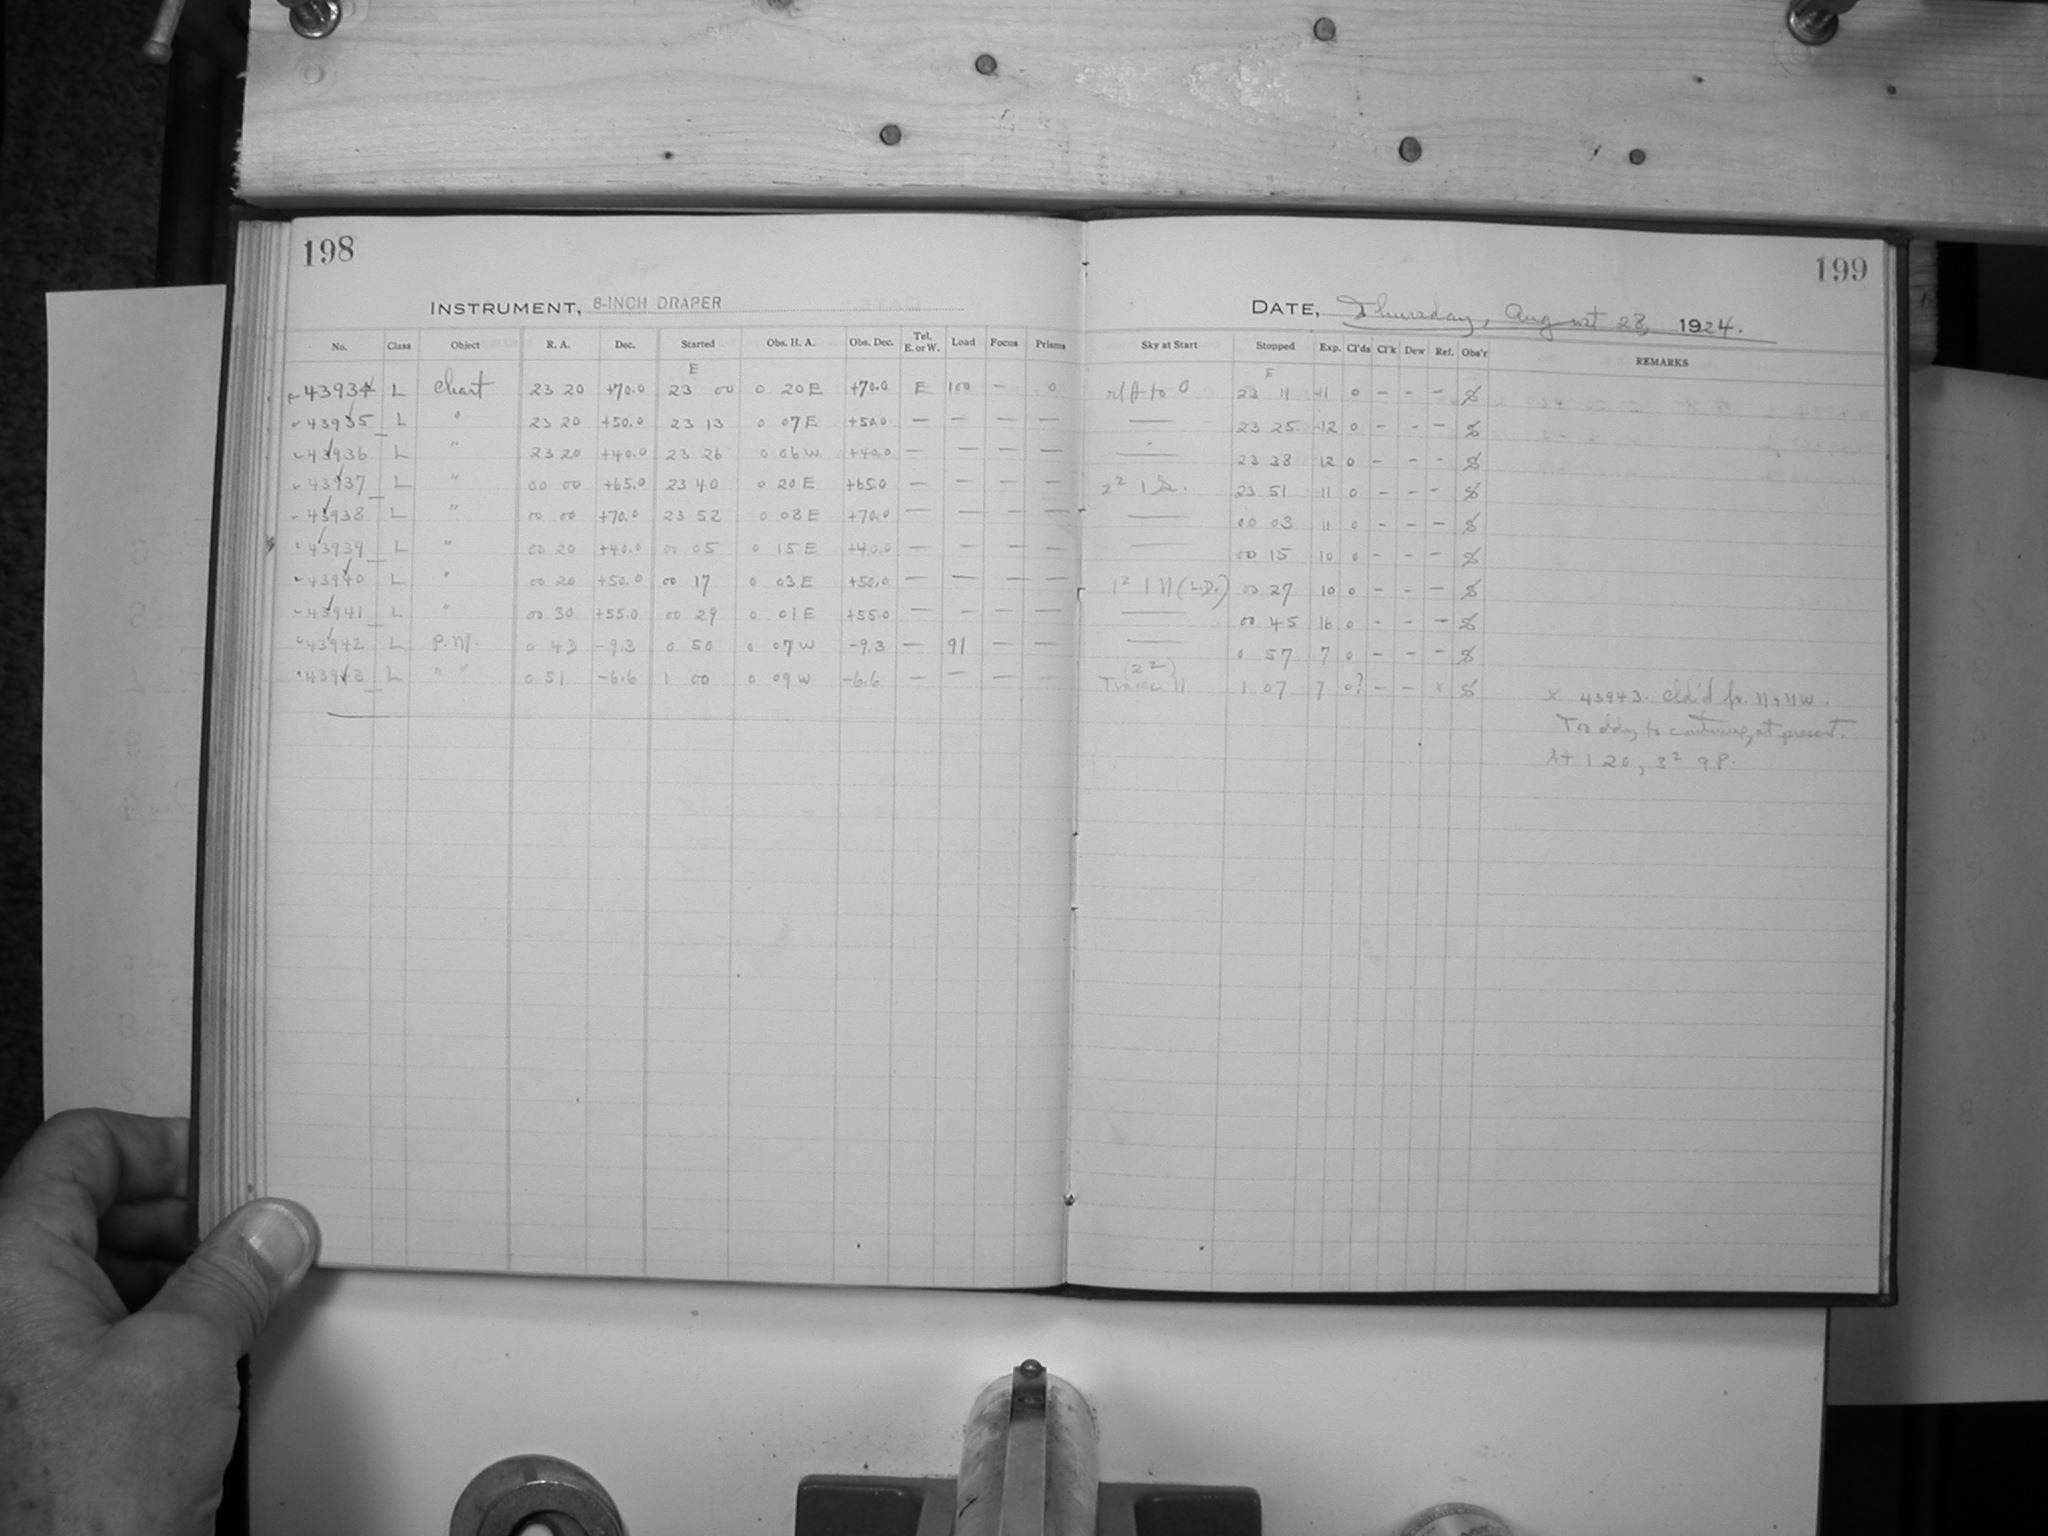 198
199
INSTRUMENT, 8-INCH DRAPER
DATE, Thursday, August 28, 1924.
No. Class Object R. A. Dec. Started Obs. H. A. Obs. Dec. Tel. E. or W. Load Focus Prisms Sky at Start Stopped Exp. Cl'ds Cl'k Dew Ref. Obs'r REMARKS
E E
43934 L Chart 23 20 +70.0 23 00 0 20 E +70.0 E 100 – 0 to 0 23 11 11 0 – – –
43935 L " 23 20 +50.0 23 13 0 07 E +50.0 — — — — — 23 25 12 0 – – –
43936 L " 23 20 +40.0 23 26 0 06 W +40.0 — — — — — 23 38 12 0 – – –
43937 L " 00 00 +65.0 23 40 0 20 E +65.0 — — — — 2² 1 S. 23 51 11 0 – – –
43938 L " 00 00 +70.0 23 52 0 08 E +70.0 — — — — — 00 03 11 0 – – –
43939 L " 00 20 +40.0 00 05 0 15 E +40.0 — — — — — 00 15 10 0 – – –
43940 L " 00 20 +50.0 00 17 0 03 E +50.0 — — — — 1² 1 N (L.D.) 00 27 10 0 – – –
43941 L " 00 30 +55.0 00 29 0 01 E +55.0 — — — — — 00 45 16 0 – – –
43942 L P.M. 0 43 -9.3 0 50 0 07 W -9.3 — 91 — — — 0 57 7 0 – – –
43943 L " " 0 51 -6.6 1 00 0 09 W -6.6 — — — — (2²) N 1 07 7 0? – – x S
x 43943. Cld'd fr. N + NW.
Too cldy to continue, at present.
At 1 20, 3² 9 P.